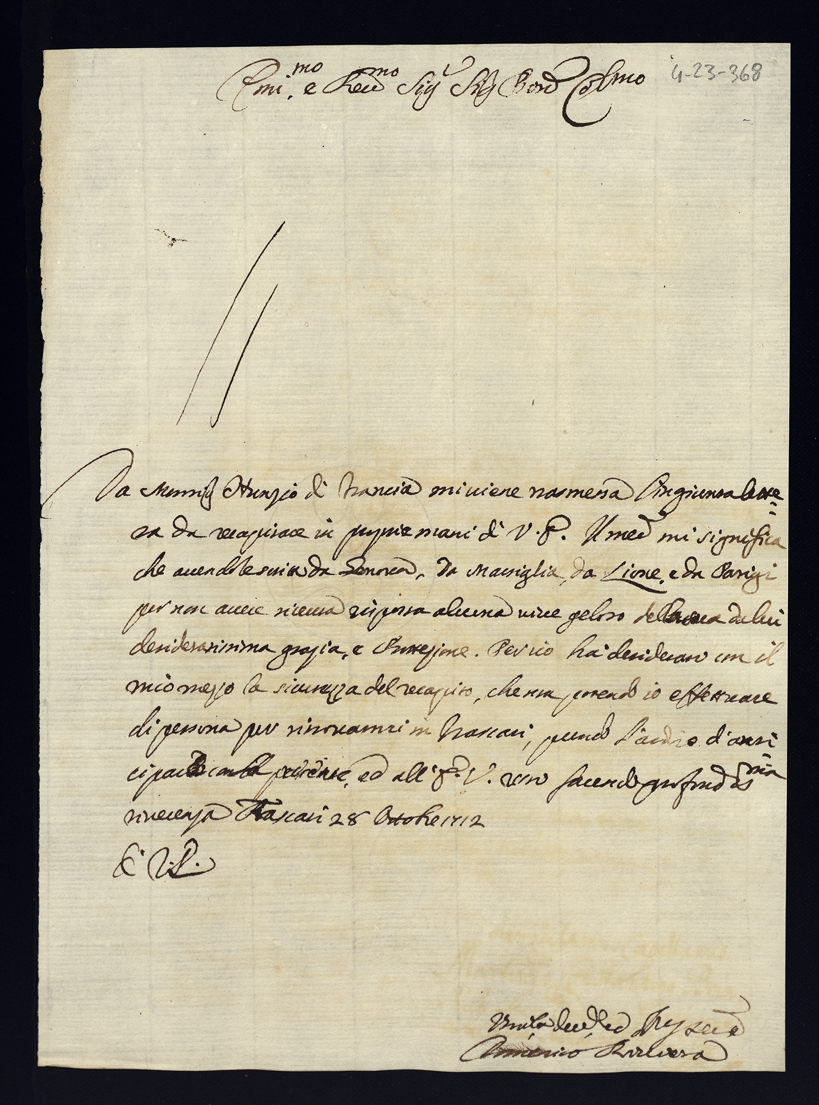 Emi.mo e Reu.mo Sigr Sigr Prone Colmo 4-23-368
Da Monsig Nunzio di Francia mi viene trasmessa l'ingiunta lette=
ra da recapitare in proprie mani di V. E. Il med mi significa
che avendole scritto da Genova, da Marsiglia, da Lione, e da Parigi
per non avere ricevuta risposta alcuna vive geloso della da lei
desideratissima grazia, e Protezione. Per ciò ha desiderato con il
mio mezzo la sicurezza del recapito, che non potendo io effettuare
di persona per ritrovarmi in Frascati, prendo l'ardire d'anti=
cipare colla presente, ed all' E. V. faccio profondissima
riverenza Frascati 28 Ottobre 1712
Di V. E.
Umilo Deuo ed